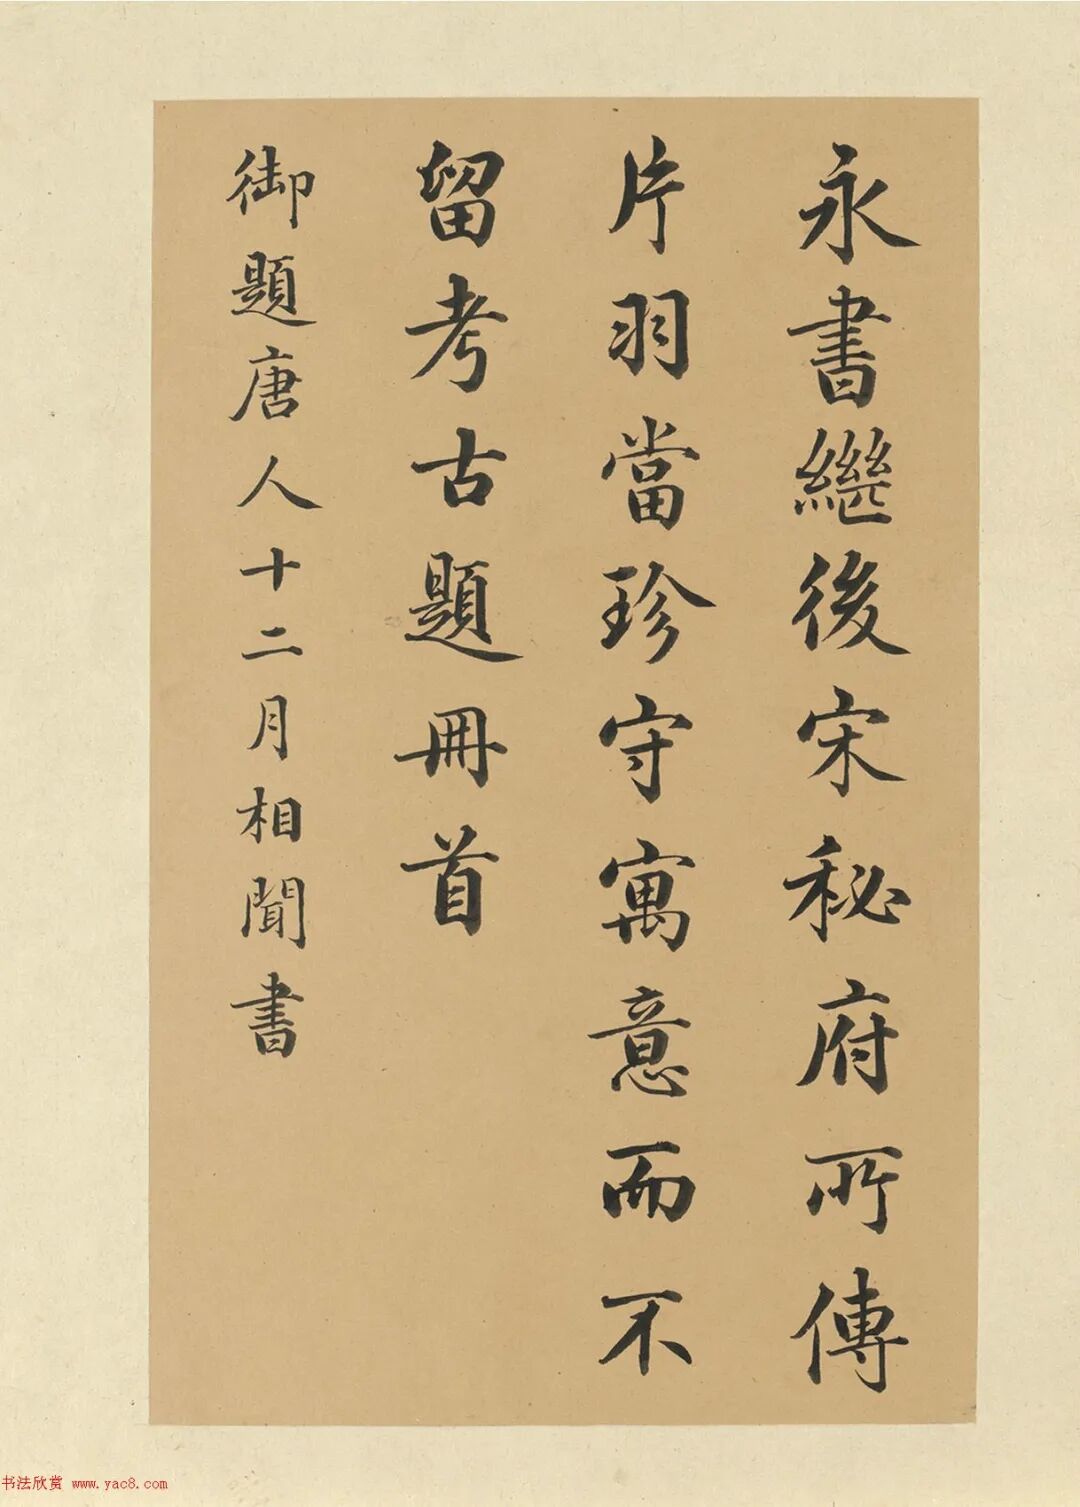 永書繼後宋秘府所傳
片羽當珍守寓意而不
留考古題冊首
御題唐人十二月相聞書
书法欣赏 www.yac8.com